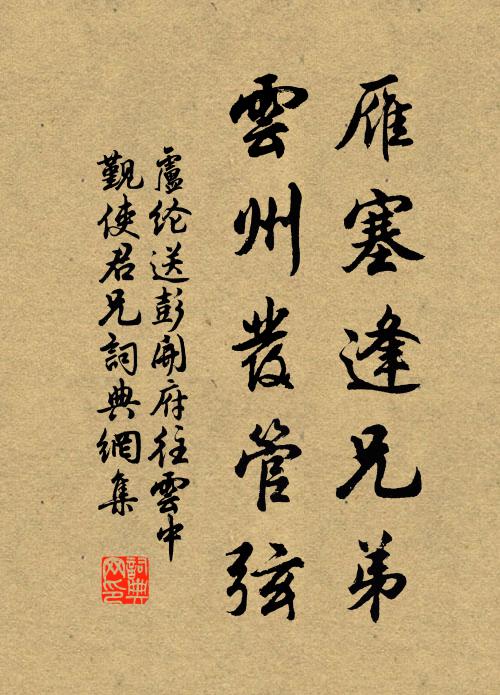 雁塞逢兄弟
雲州發管弦
盧纶送彭開府往雲中
觐使君兄詞典網集
詞典
网印